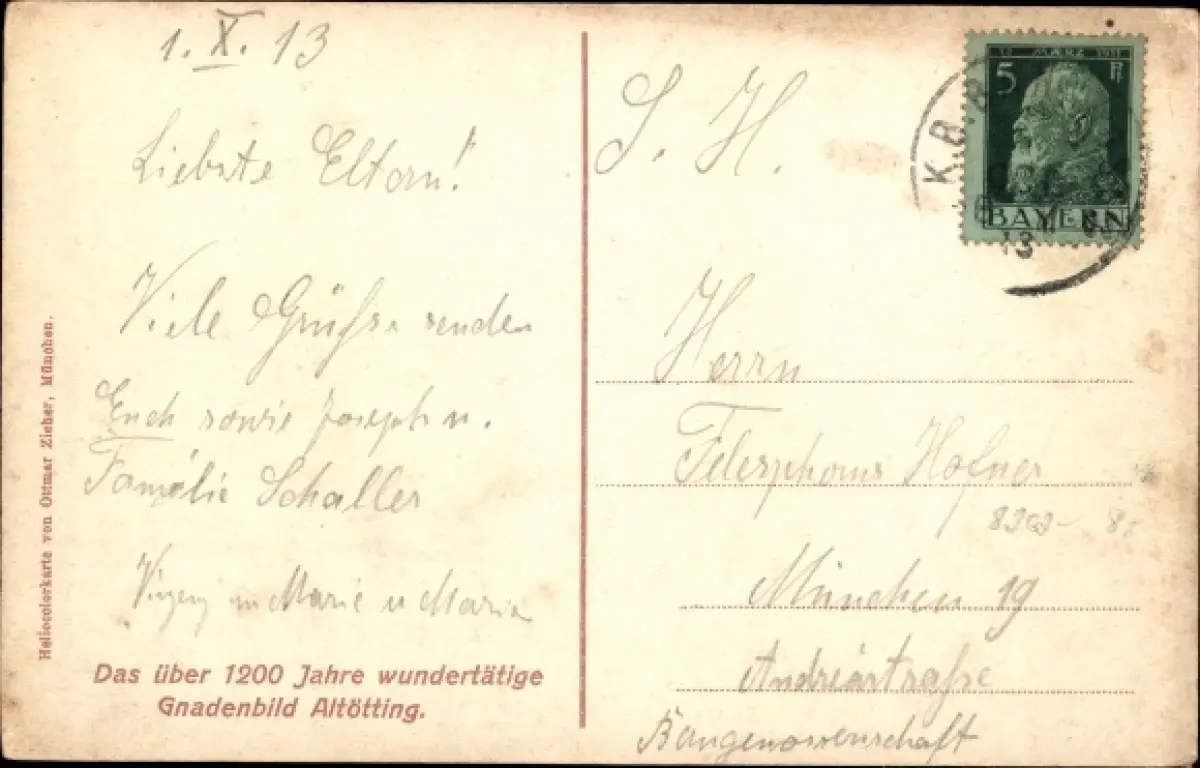 1. X. 13
Liebste Eltern!
Viele Grüße senden
Euch sowie Joseph u.
Familie Schaller
Marie u Maria
Das über 1200 Jahre wundertätige
Gnadenbild Altötting.
Heliocolorkarte von Ottmar Zieher, München.
S. H.
Herrn
Telesphorus Hofner
München 19
Andréestraße
Baugenossenschaft
K.B.B
MÆRZ 1911
5 Pf
BAYERN
13